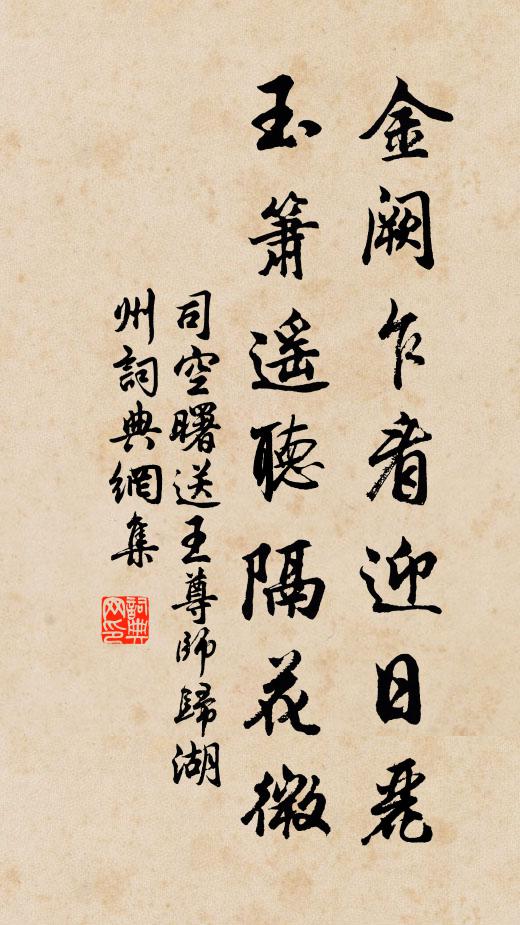 金闕乍看迎日麗
玉簫遥聽隔花微
司空曙送王尊師歸湖
州詞典網集
詞典
网印